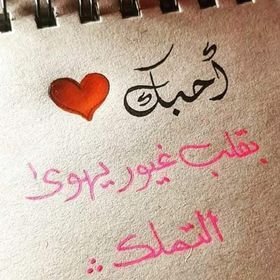 أحبك
بقلب غيور يهوى
التملك ..